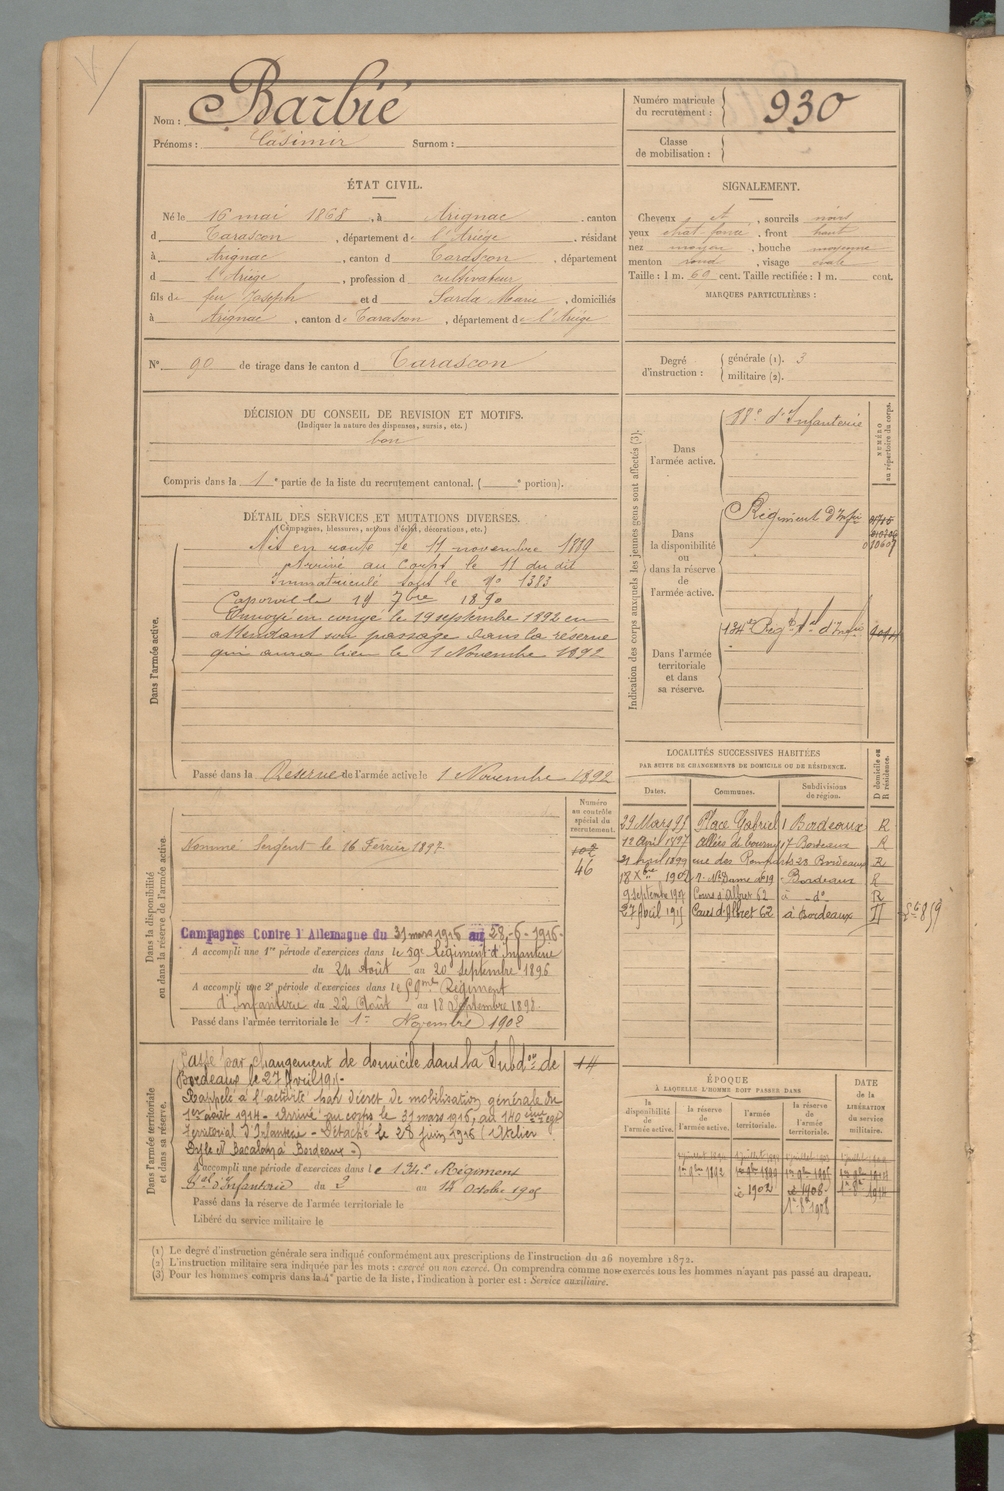 Nom : Barbié
Prénoms : Casimir Surnom :
Numéro matricule du recrutement : 930
Classe de mobilisation :
ÉTAT CIVIL.
Né le 16 mai 1868, à Arignac, canton
d Tarascon, département de l'Ariège, résidant
à Arignac, canton d Tarascon, département
d l'Ariège, profession d cultivateur
fils de feu Joseph et d Sarda Marie, domiciliés
à Arignac, canton de Tarascon, département de l'Ariège
SIGNALEMENT.
Cheveux et, sourcils noirs
yeux chat. foncé, front haut
nez moyen, bouche moyenne
menton rond, visage ovale
Taille : 1 m. 60 cent. Taille rectifiée : 1 m. cent.
MARQUES PARTICULIÈRES :
N° 90 de tirage dans le canton d Tarascon
Degré d'instruction : générale (1). 3
militaire (2).
DÉCISION DU CONSEIL DE REVISION ET MOTIFS.
(Indiquer la nature des dispenses, sursis, etc.)
bon
Compris dans la 1e partie de la liste du recrutement cantonal. ( e portion).
DÉTAIL DES SERVICES ET MUTATIONS DIVERSES.
(Campagnes, blessures, actions d'éclat, décorations, etc.)
Dans l'armée active.
Mis en route le 11 novembre 1889
Arrivé au corps le 11 du dit
Immatriculé sous le n° 1383
Caporal le 19 7bre 1890
Envoyé en congé le 19 septembre 1892 en
attendant son passage dans la réserve
qui aura lieu le 1 Novembre 1892
Passé dans la Réserve de l'armée active le 1 Novembre 1892
Indication des corps auxquels les jeunes gens sont affectés (3).
NUMÉRO au répertoire du corps.
Dans l'armée active.
d'Infanterie
Dans la disponibilité ou dans la réserve de l'armée active.
Régiment d'Infie
010607
Dans l'armée territoriale et dans sa réserve.
134e Régt tal d'Infie
LOCALITÉS SUCCESSIVES HABITÉES
PAR SUITE DE CHANGEMENTS DE DOMICILE OU DE RÉSIDENCE.
Dates. Communes. Subdivisions de région. D domicile ou R résidence.
29 Mars 95 Place Gabriel 1 Bordeaux R
12 avril 1897 allées de 17 Bordeaux R
21 1899 rue des 23 Bordeaux R
18 Xbre 1902 r. Nre Dame 19 Bordeaux R
9 septembre Cours d'Albret 62 à do R
27 Avril Cours d'Albret 62 à Bordeaux
Numéro au contrôle spécial du recrutement.
102
46
Dans la disponibilité ou dans la réserve de l'armée active.
Nommé Sergent le 16 Février 1897
Campagnes Contre l'Allemagne du 31 mars 1916 au 28-6-1916.
A accompli une 1re période d'exercices dans le 59e Régiment d'Infanterie
du 24 Août au 20 septembre 1896
A accompli une 2e période d'exercices dans le 59me Régiment
d'Infanterie du 22 Août au 18 Septembre 1898.
Passé dans l'armée territoriale le 1er Novembre 1902
Dans l'armée territoriale et dans sa réserve.
Passé par changement de domicile dans la Subdon de
Bordeaux le 27 Avril
14
Rappelé à l'activité par décret de mobilisation générale du
1er août 1914 - Arrivé au corps le 31 mars 1916, au 140ème Régt
Territorial d'Infanterie - Détaché le 28 juin 1916 (Atelier
Dyle et Bacalan à Bordeaux -)
A accompli une période d'exercices dans le 134e Régiment
tal d'Infanterie du 2 au 14 Octobre 1905
Passé dans la réserve de l'armée territoriale le
Libéré du service militaire le
ÉPOQUE
À LAQUELLE L'HOMME DOIT PASSER DANS
la disponibilité de l'armée active. la réserve de l'armée active. l'armée territoriale. la réserve de l'armée territoriale.
DATE de la LIBÉRATION du service militaire.
1er 9bre 1892
1902
1908
(1) Le degré d'instruction générale sera indiqué conformément aux prescriptions de l'instruction du 26 novembre 1872.
(2) L'instruction militaire sera indiquée par les mots : exercé ou non exercé. On comprendra comme non exercés tous les hommes n'ayant pas passé au drapeau.
(3) Pour les hommes compris dans la 4e partie de la liste, l'indication à porter est : Service auxiliaire.